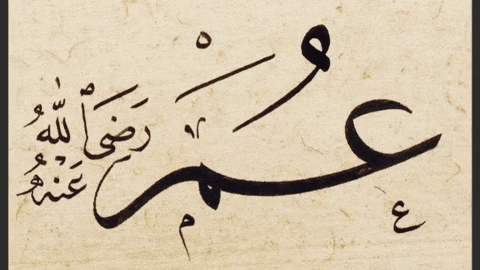 عُمَر
رَضَىَ ٱللّٰهُ
عَنْهُ